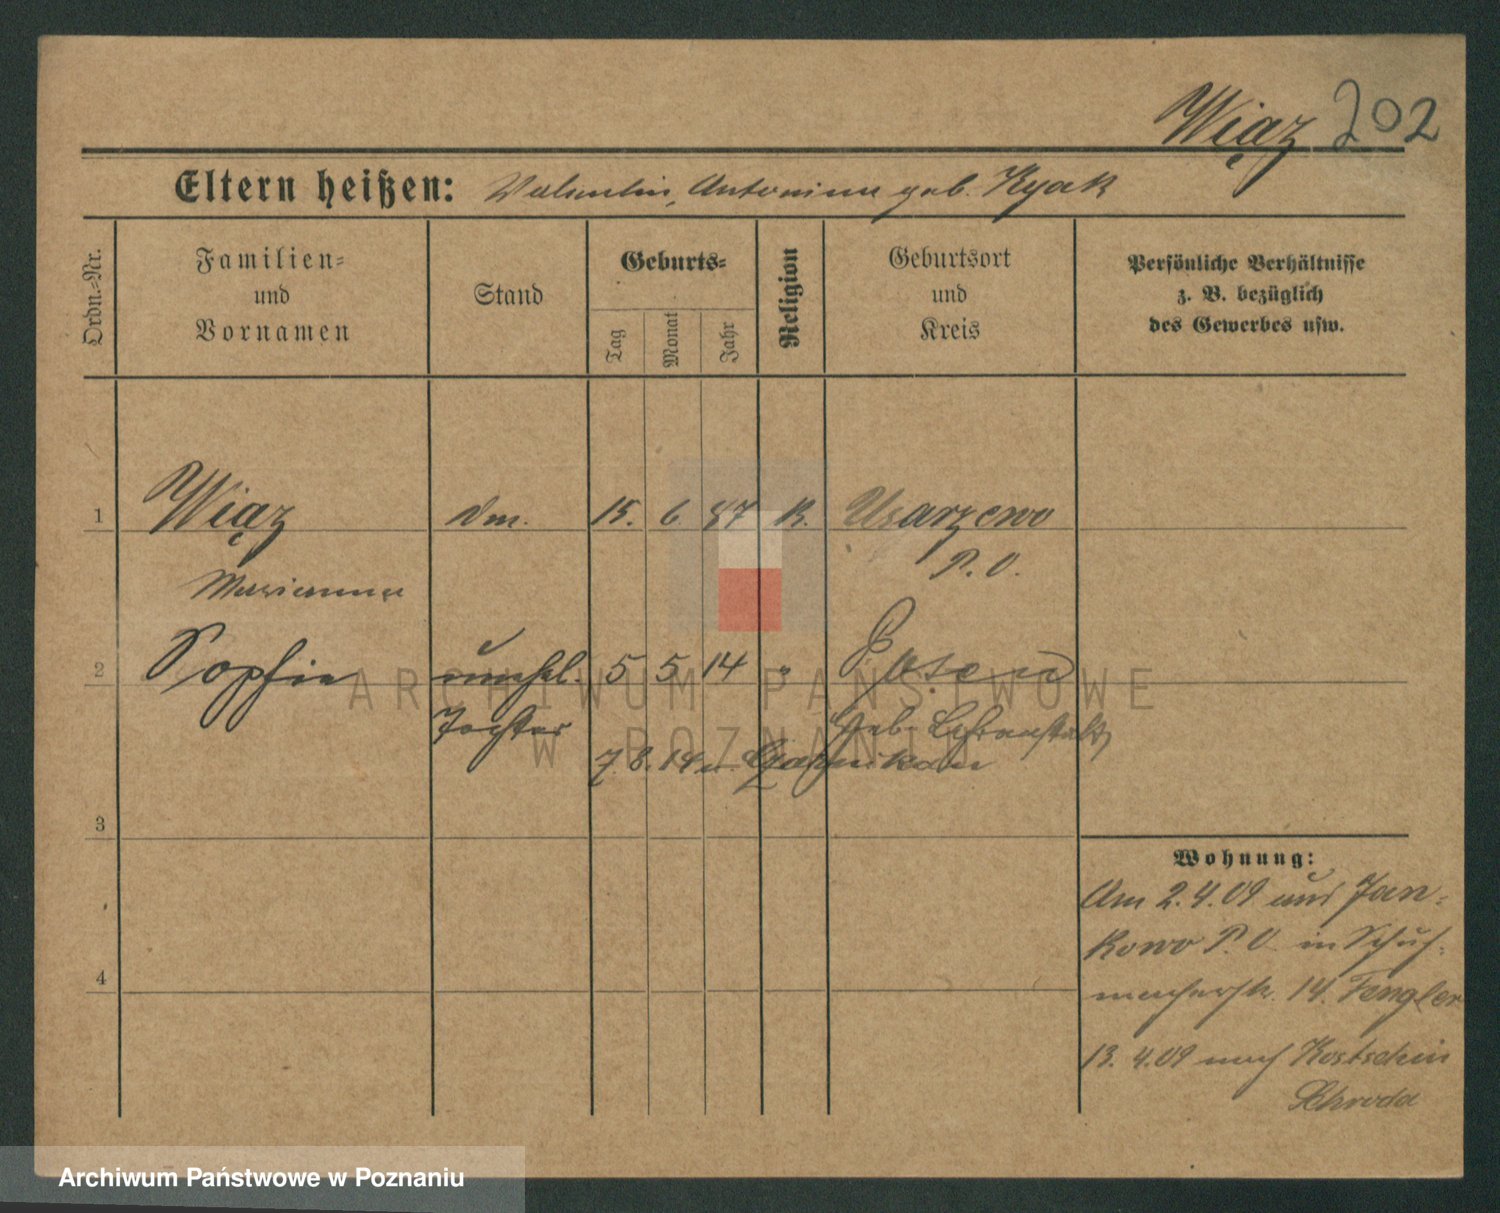 Wiąz 202
Eltern heißen: Valentin, Antonina geb. Kyak
Ordn.-Nr.
Familien-
und
Vornamen
Stand
Geburts-
Tag
Monat
Jahr
Religion
Geburtsort
und
Kreis
Persönliche Verhältnisse
z. B. bezüglich
des Gewerbes usw.
1 Wiąz Dm. 15. 6 87 K. Usarzewo
P. O.
Marianna
2 Sophie unehl. 5 5 14 " Posen
Tochter Geb. Lehranstalt
7. 8. 14 n. Czarnikau
3
4
Wohnung:
Am 2.4.09 aus Jan-
kowo P. O. in Schuh-
macherstr. 14. Fengler
13. 4.09 nach Kostschin
Schroda
ARCHIWUM PAŃSTWOWE
W POZNANIU
Archiwum Państwowe w Poznaniu